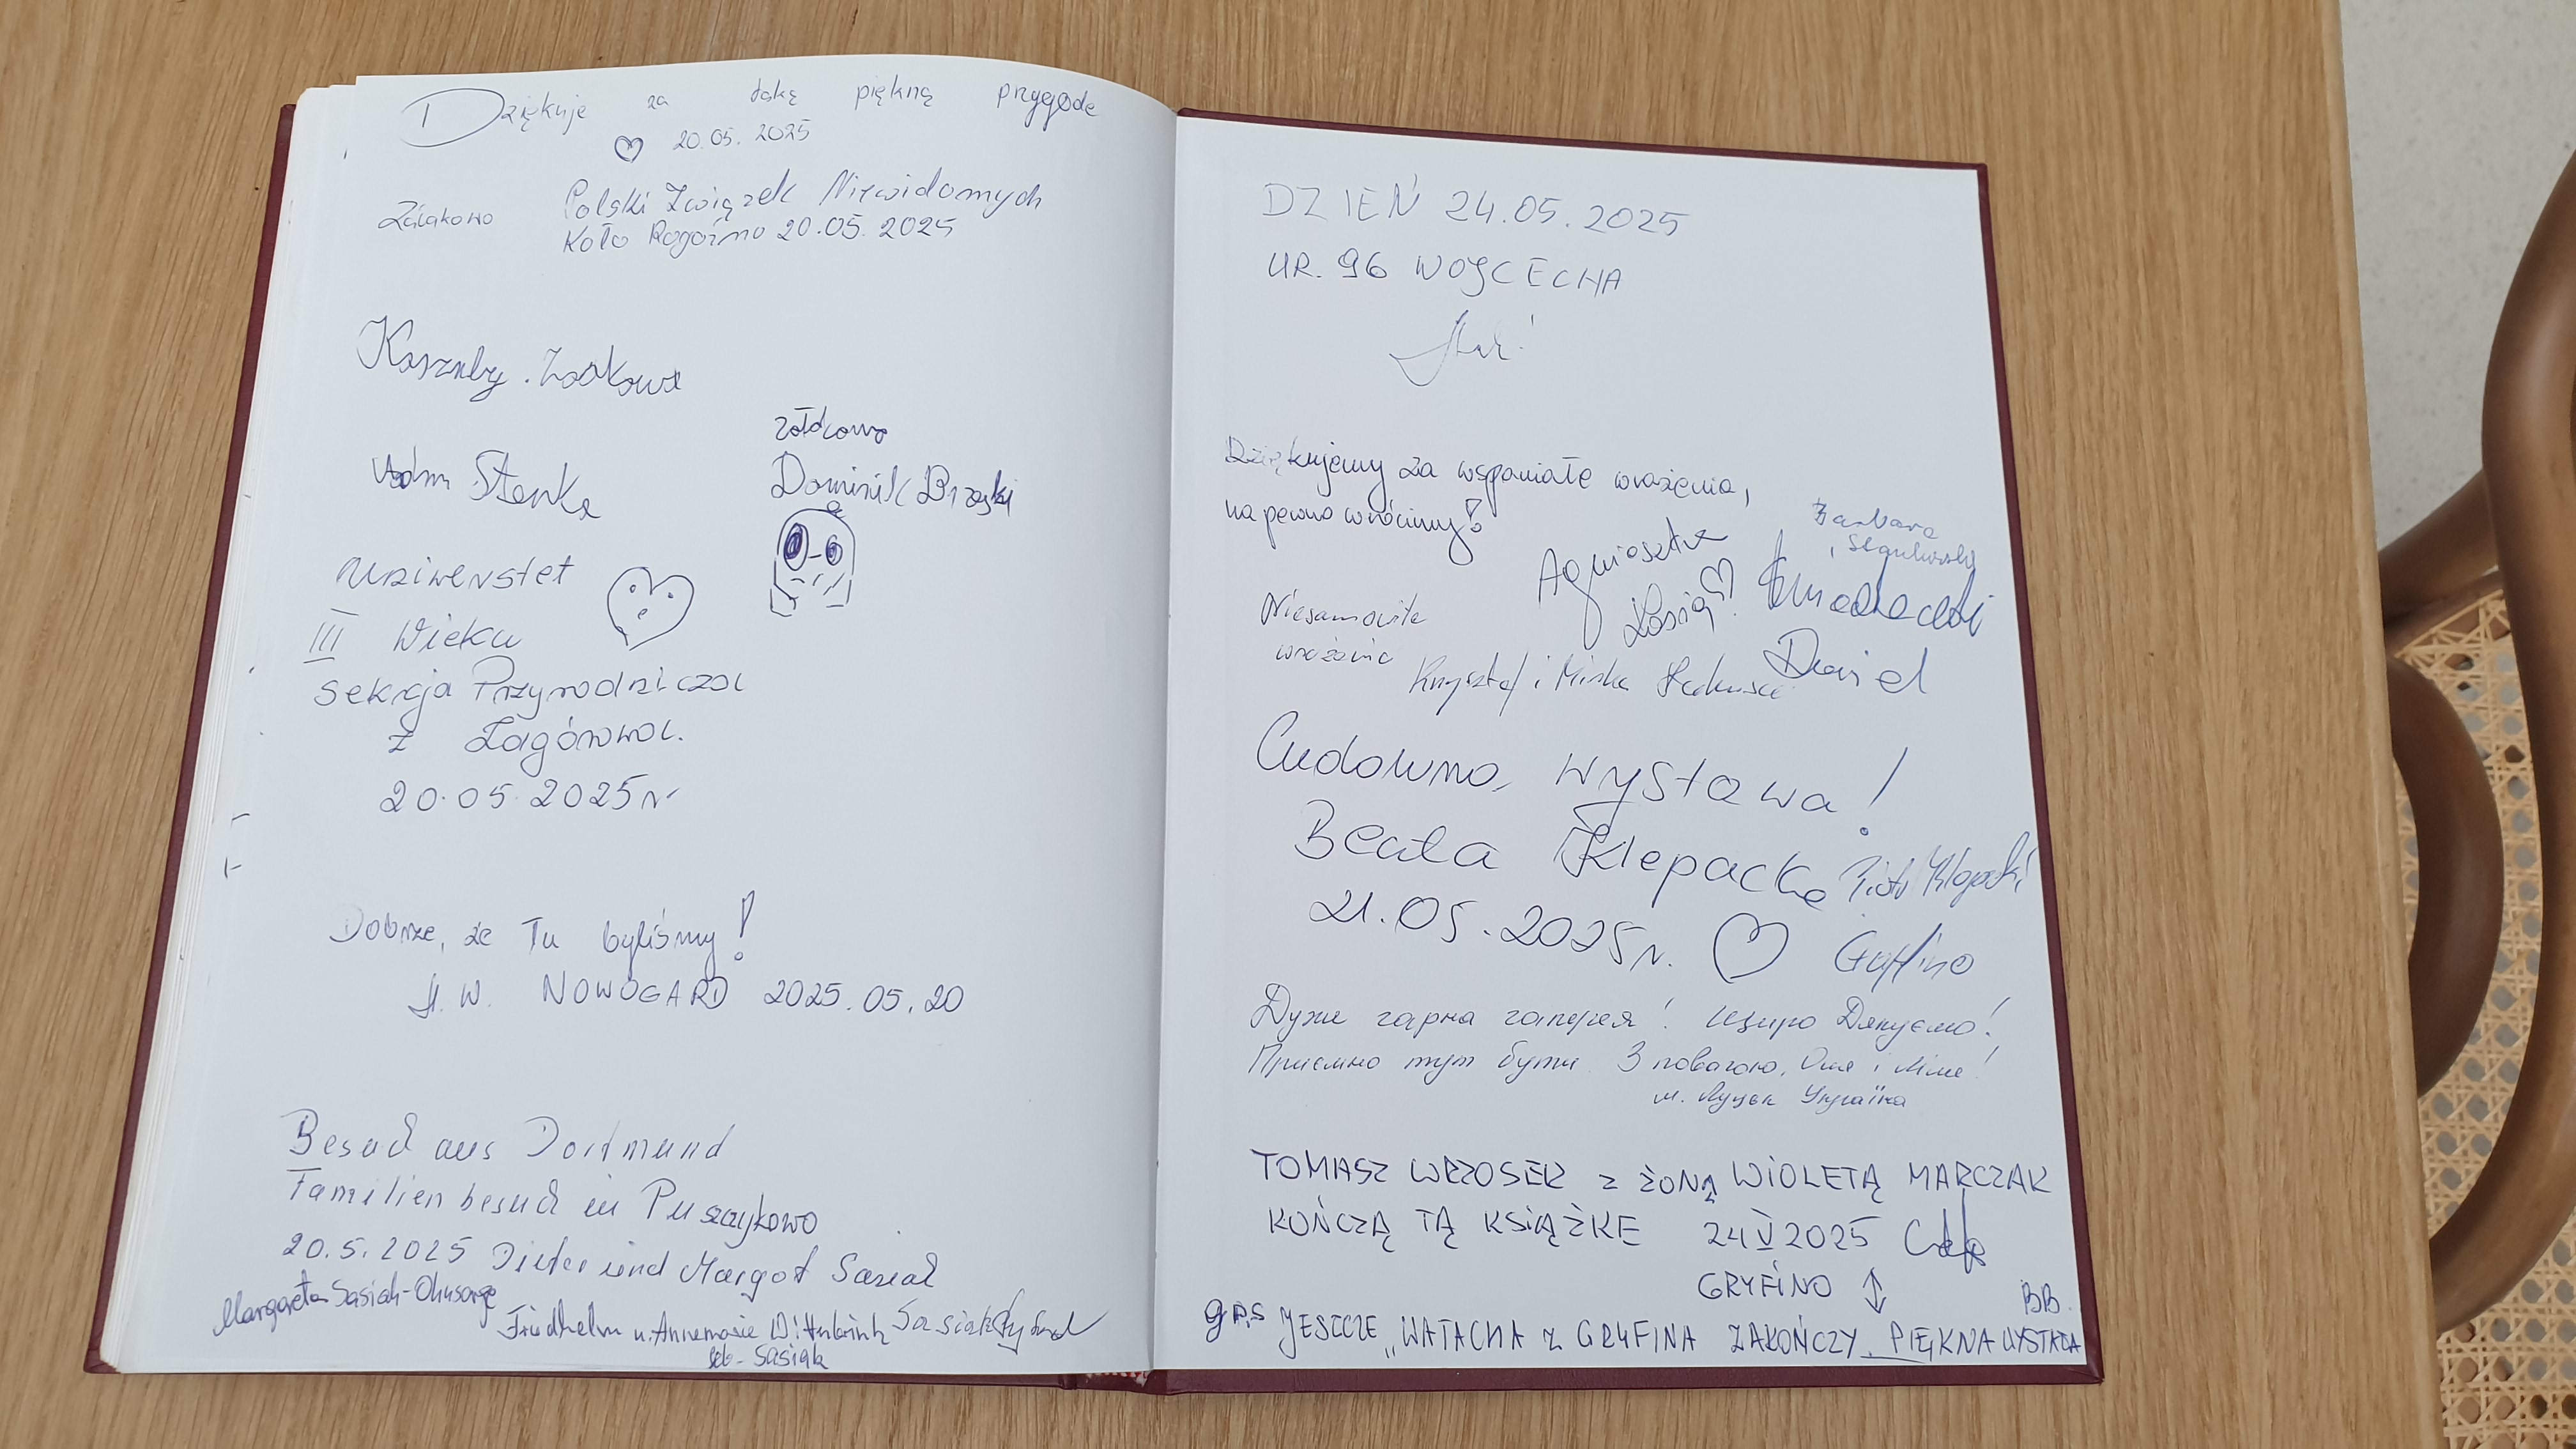 Dziękuje za taką piękną przygodę
20.05.2025
Polski Związek Niewidomych
Koło Rogoźno 20.05.2025
Kaszuby
Stenka
Dominik Brzeski
Uniwerstet
III Wieku
Sekcja Przyrodnicza
z Zagórowa.
20.05.2025r
Dobrze, że Tu byliśmy!
H.W. NOWOGARD 2025.05.20
Besuch aus Dortmund
Familienbesuch in Puszczykowo
20.5.2025 Dieter und Margot Sasiak
Margareta Sasiak-
Friedhelm u. Annemarie Sasiak
geb. Sasiak
DZIEŃ 24.05.2025
UR. 96 WOJCECHA
Dziękujemy za wspaniałe wrażenia,
na pewno wrócimy!
Barbara
Agnieszka
Niesamowite
wrażenia
Krzysztof i Mirka
Daniel
Cudowna wystawa!
Beata Klepacka Piotr Klepacki
21.05.2025r. Gryfino
Дуже гарна галерея! Щиро Дякуємо!
Приємно тут бути. З повагою, Оля і Міла!
м. Луцьк Україна
TOMASZ WRZOSEK z ŻONĄ WIOLETĄ MARCZAK
KOŃCZĄ TĄ KSIĄŻKE 24 V 2025
GRYFINO
BB.
JESZCZE „WATACHA Z GRYFINA ZAKOŃCZY. PIĘKNA WYSTAWA